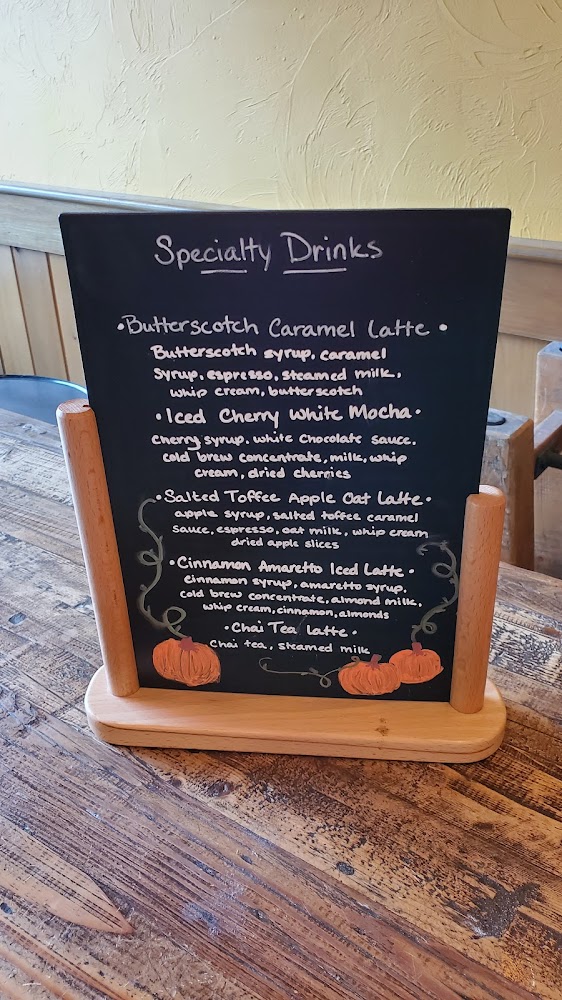 Specialty Drinks
•Butterscotch Caramel Latte•
Butterscotch syrup, caramel
syrup, espresso, steamed milk,
whip cream, butterscotch
•Iced Cherry White Mocha•
Cherry syrup, white chocolate sauce,
cold brew concentrate, milk, whip
cream, dried cherries
•Salted Toffee Apple Oat Latte•
apple syrup, salted toffee caramel
sauce, espresso, oat milk, whip cream
dried apple slices
•Cinnamon Amaretto Iced Latte•
cinnamon syrup, amaretto syrup,
cold brew concentrate, almond milk,
whip cream, cinnamon, almonds
•Chai Tea Latte•
Chai tea, steamed milk